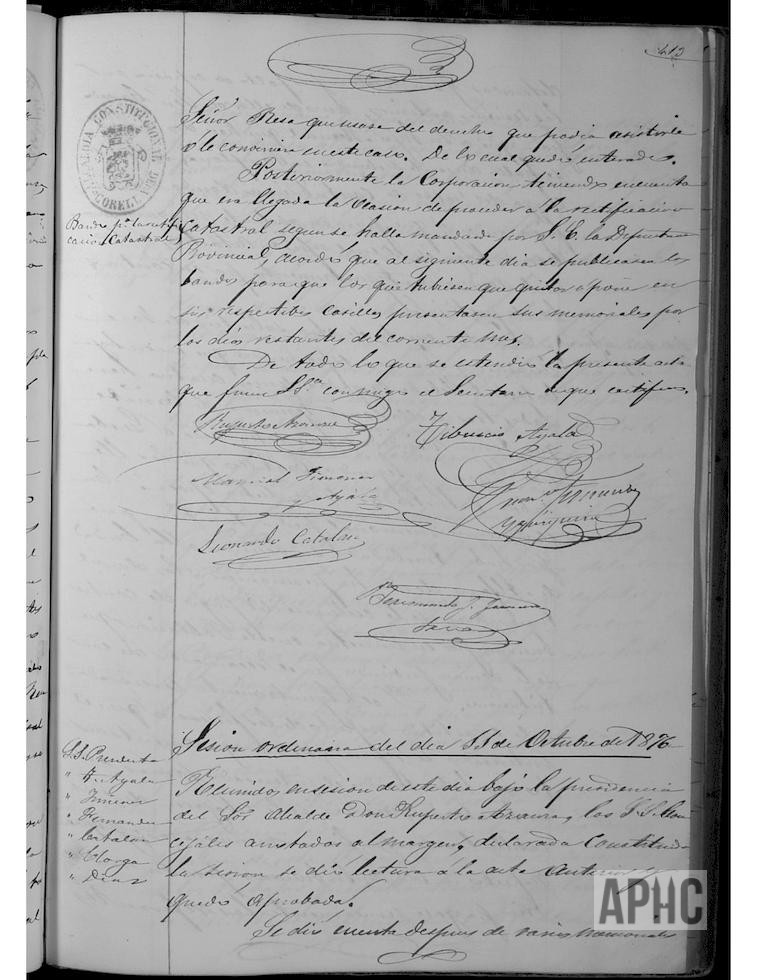 413
Señor Resa que usase del derecho que podia asistirle
ó le conviniera en este caso. De lo cual quedó enterado.
Posteriormente la Corporacion teniendo en cuenta
que era llegada la ocasion de proceder á la rectificacion
catastral segun se halla mandado por S. E. la Diputacion
Provincial, acordó que al siguiente dia se publicasen los
bandos para que los que tubiesen que quitar ó poner en
sus respectibas casillas presentasen sus memoriales por
los dias restantes del corriente mes.
De todo lo que se estendió la presente acta
que firman SSrias conmigo el Secretario de que certifico.
ALCALDIA CONSTITUCIONAL DE CORELLA
Bando pa. la rectifi
cacion Catastral
Ruperto Arzanza
Tiburcio Ayala
Manuel Jimenez
y Ayala
Leonardo Catalan
Fernando
Sesion ordinaria del dia 11 de Octubre de 1876
S.S. Presidente
" F. Ayala
" Jimenez
" Fernandez
" Catalan
" Diaz
Reunidos en sesion de este dia bajo la presidencia
del Sor. Alcalde Don Ruperto Arzanza, los S.S. Con
cejales anotados al margen, declarada constituida
la sesion se dió lectura á la acta anterior y
quedó aprobada.
Se dió cuenta despues de varios memoriales
APHC